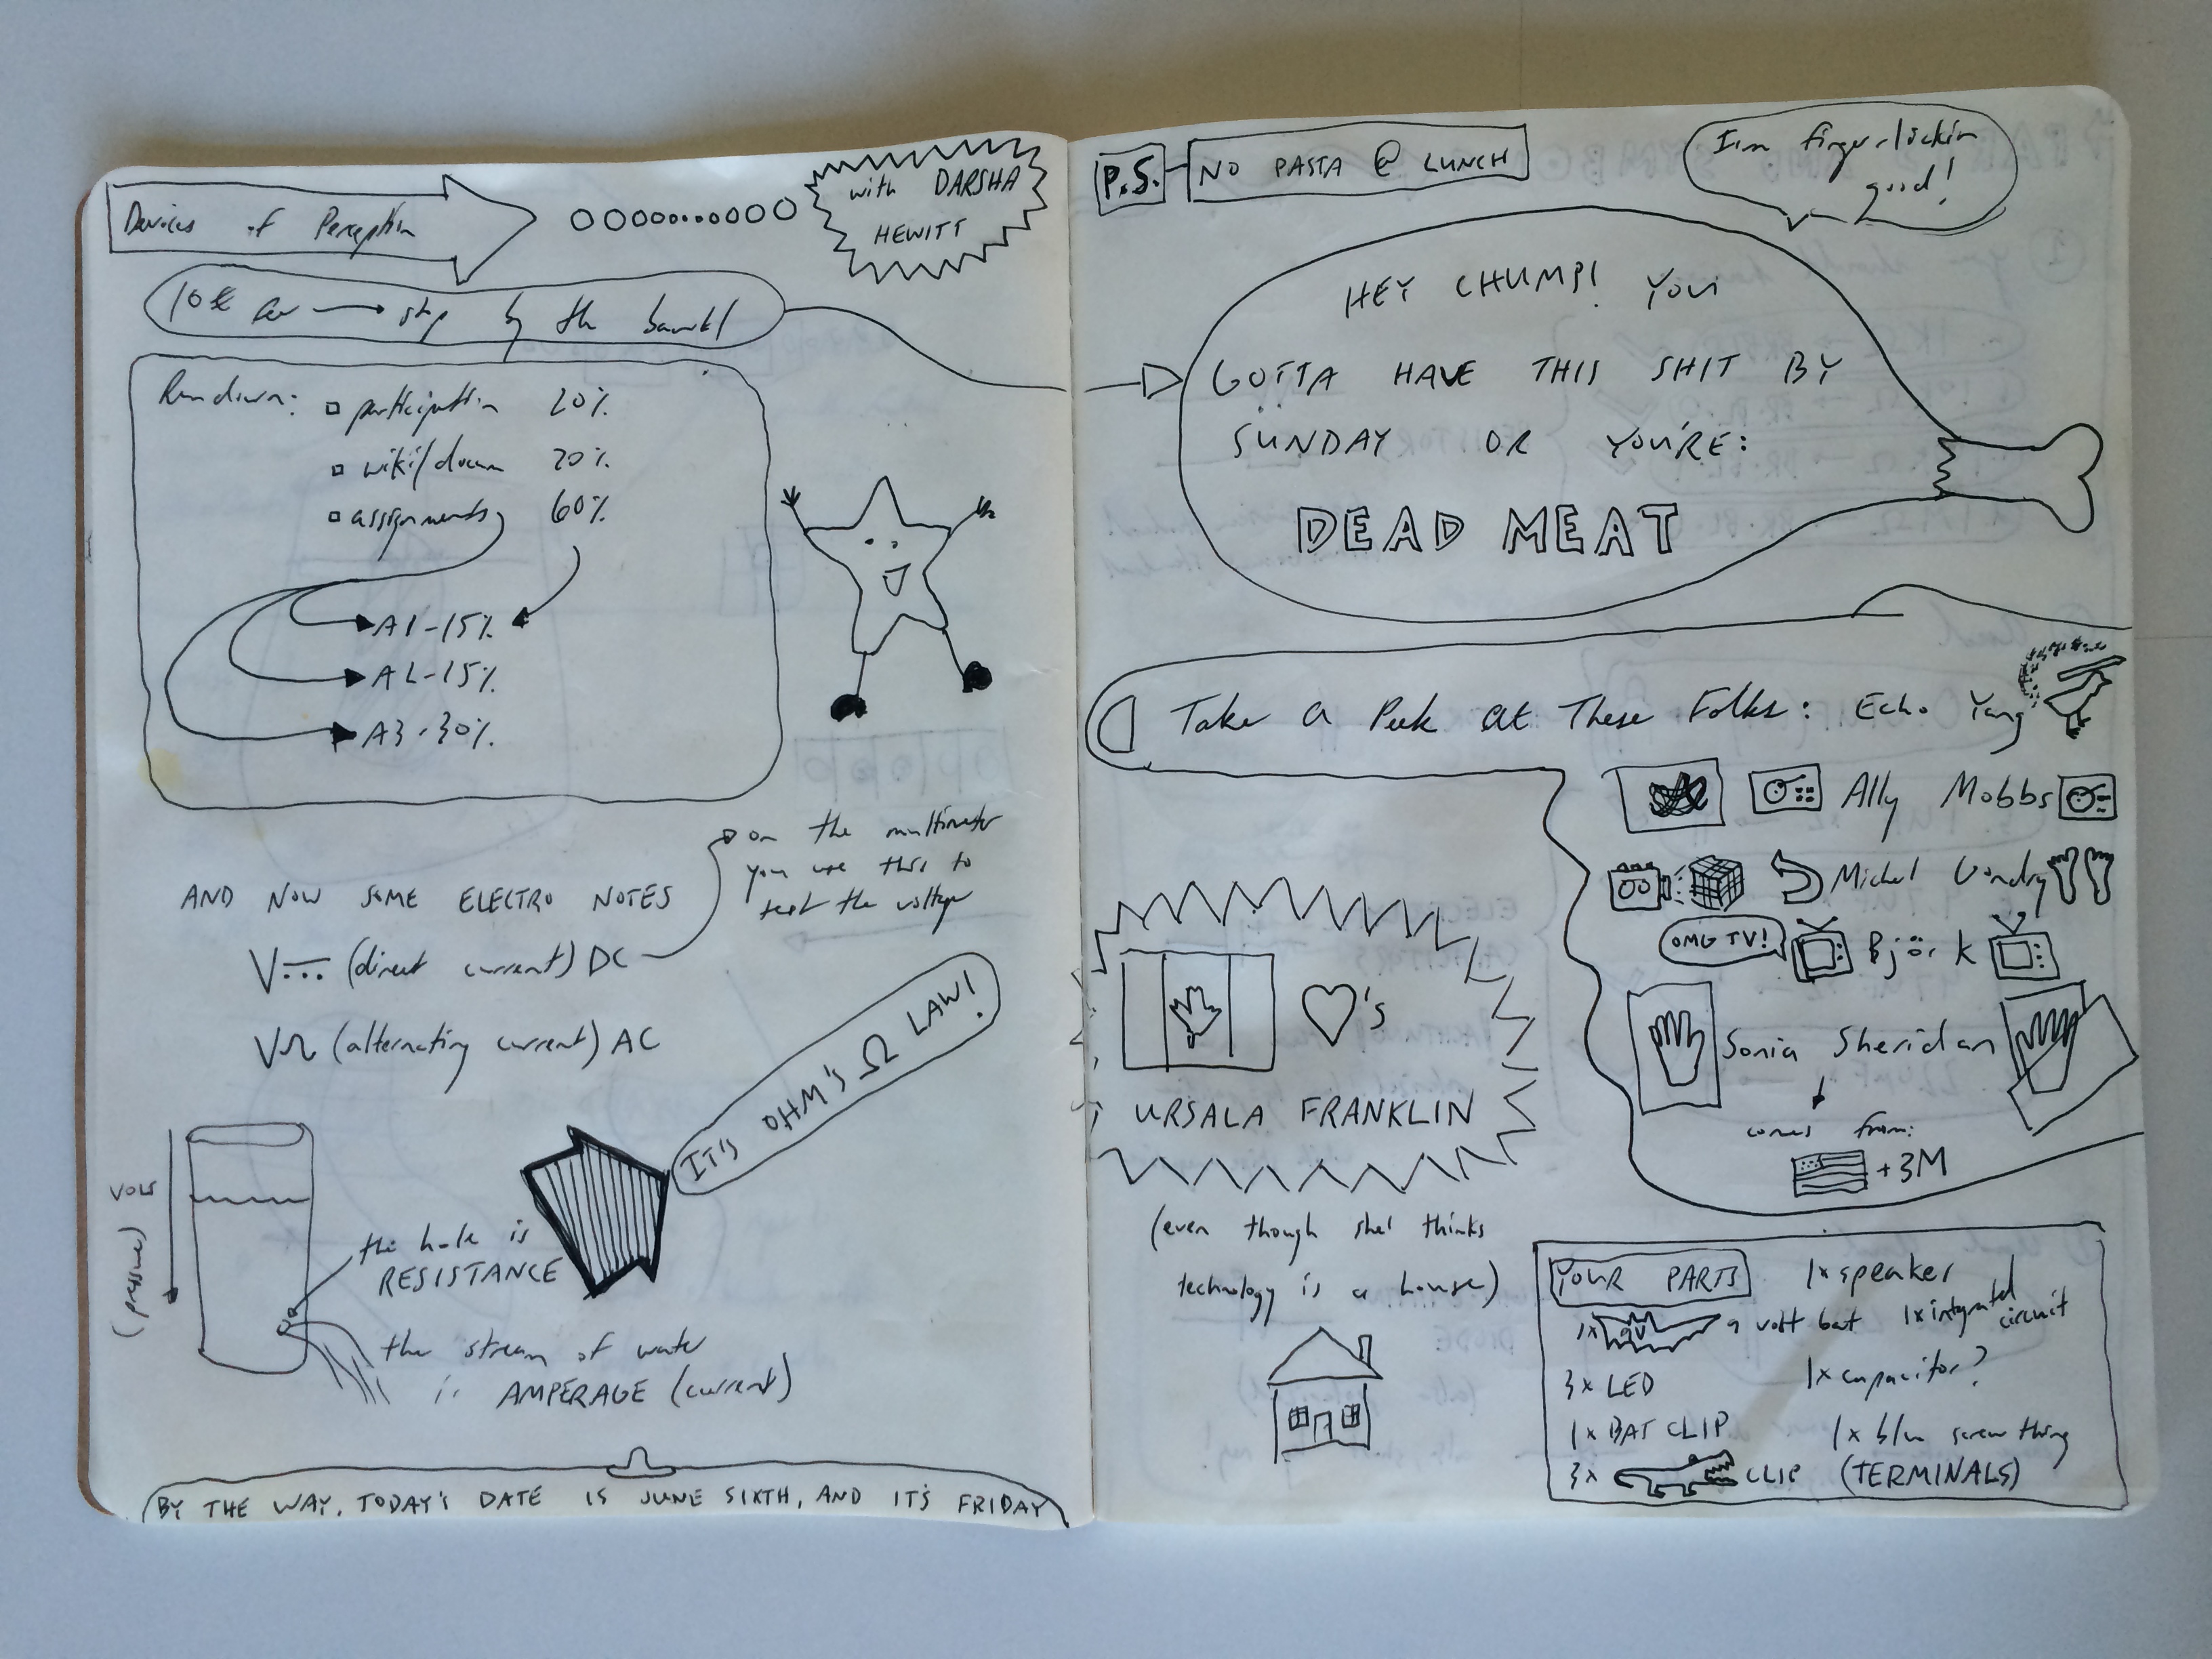 Devices of Perception
with DARSHA
HEWITT
10€ fee → stop by the bank!
Rundown: participation 20%
wiki/docum 20%
assignments 60%
A1-15%
A2-15%
A3-30%
AND NOW SOME ELECTRO NOTES
on the multimeter
you use this to
test the voltage
V (direct current) DC
V (alternating current) AC
IT'S OHM'S Ω LAW!
VOLTS
(pressure)
the hole is
RESISTANCE
the stream of water
is AMPERAGE (current)
BY THE WAY, TODAY'S DATE IS JUNE SIXTH, AND IT'S FRIDAY
P.S. NO PASTA @ LUNCH
I'm finger-lickin
good!
HEY CHUMP! YOU
GOTTA HAVE THIS SHIT BY
SUNDAY OR YOU'RE:
DEAD MEAT
Take a Peek at These Folks: Echo Yang
Ally Mobbs
Michel Gondry
OMG TV! Björk
Sonia Sheridan
comes from:
+3M
♡'s
URSALA FRANKLIN
(even though she thinks
technology is a house)
YOUR PARTS
1x 9V 9 volt bat
3x LED
1x BAT CLIP
3x CLIP
1x speaker
1x integrated
circuit
1x capacitor?
1x blue screw thing
(TERMINALS)